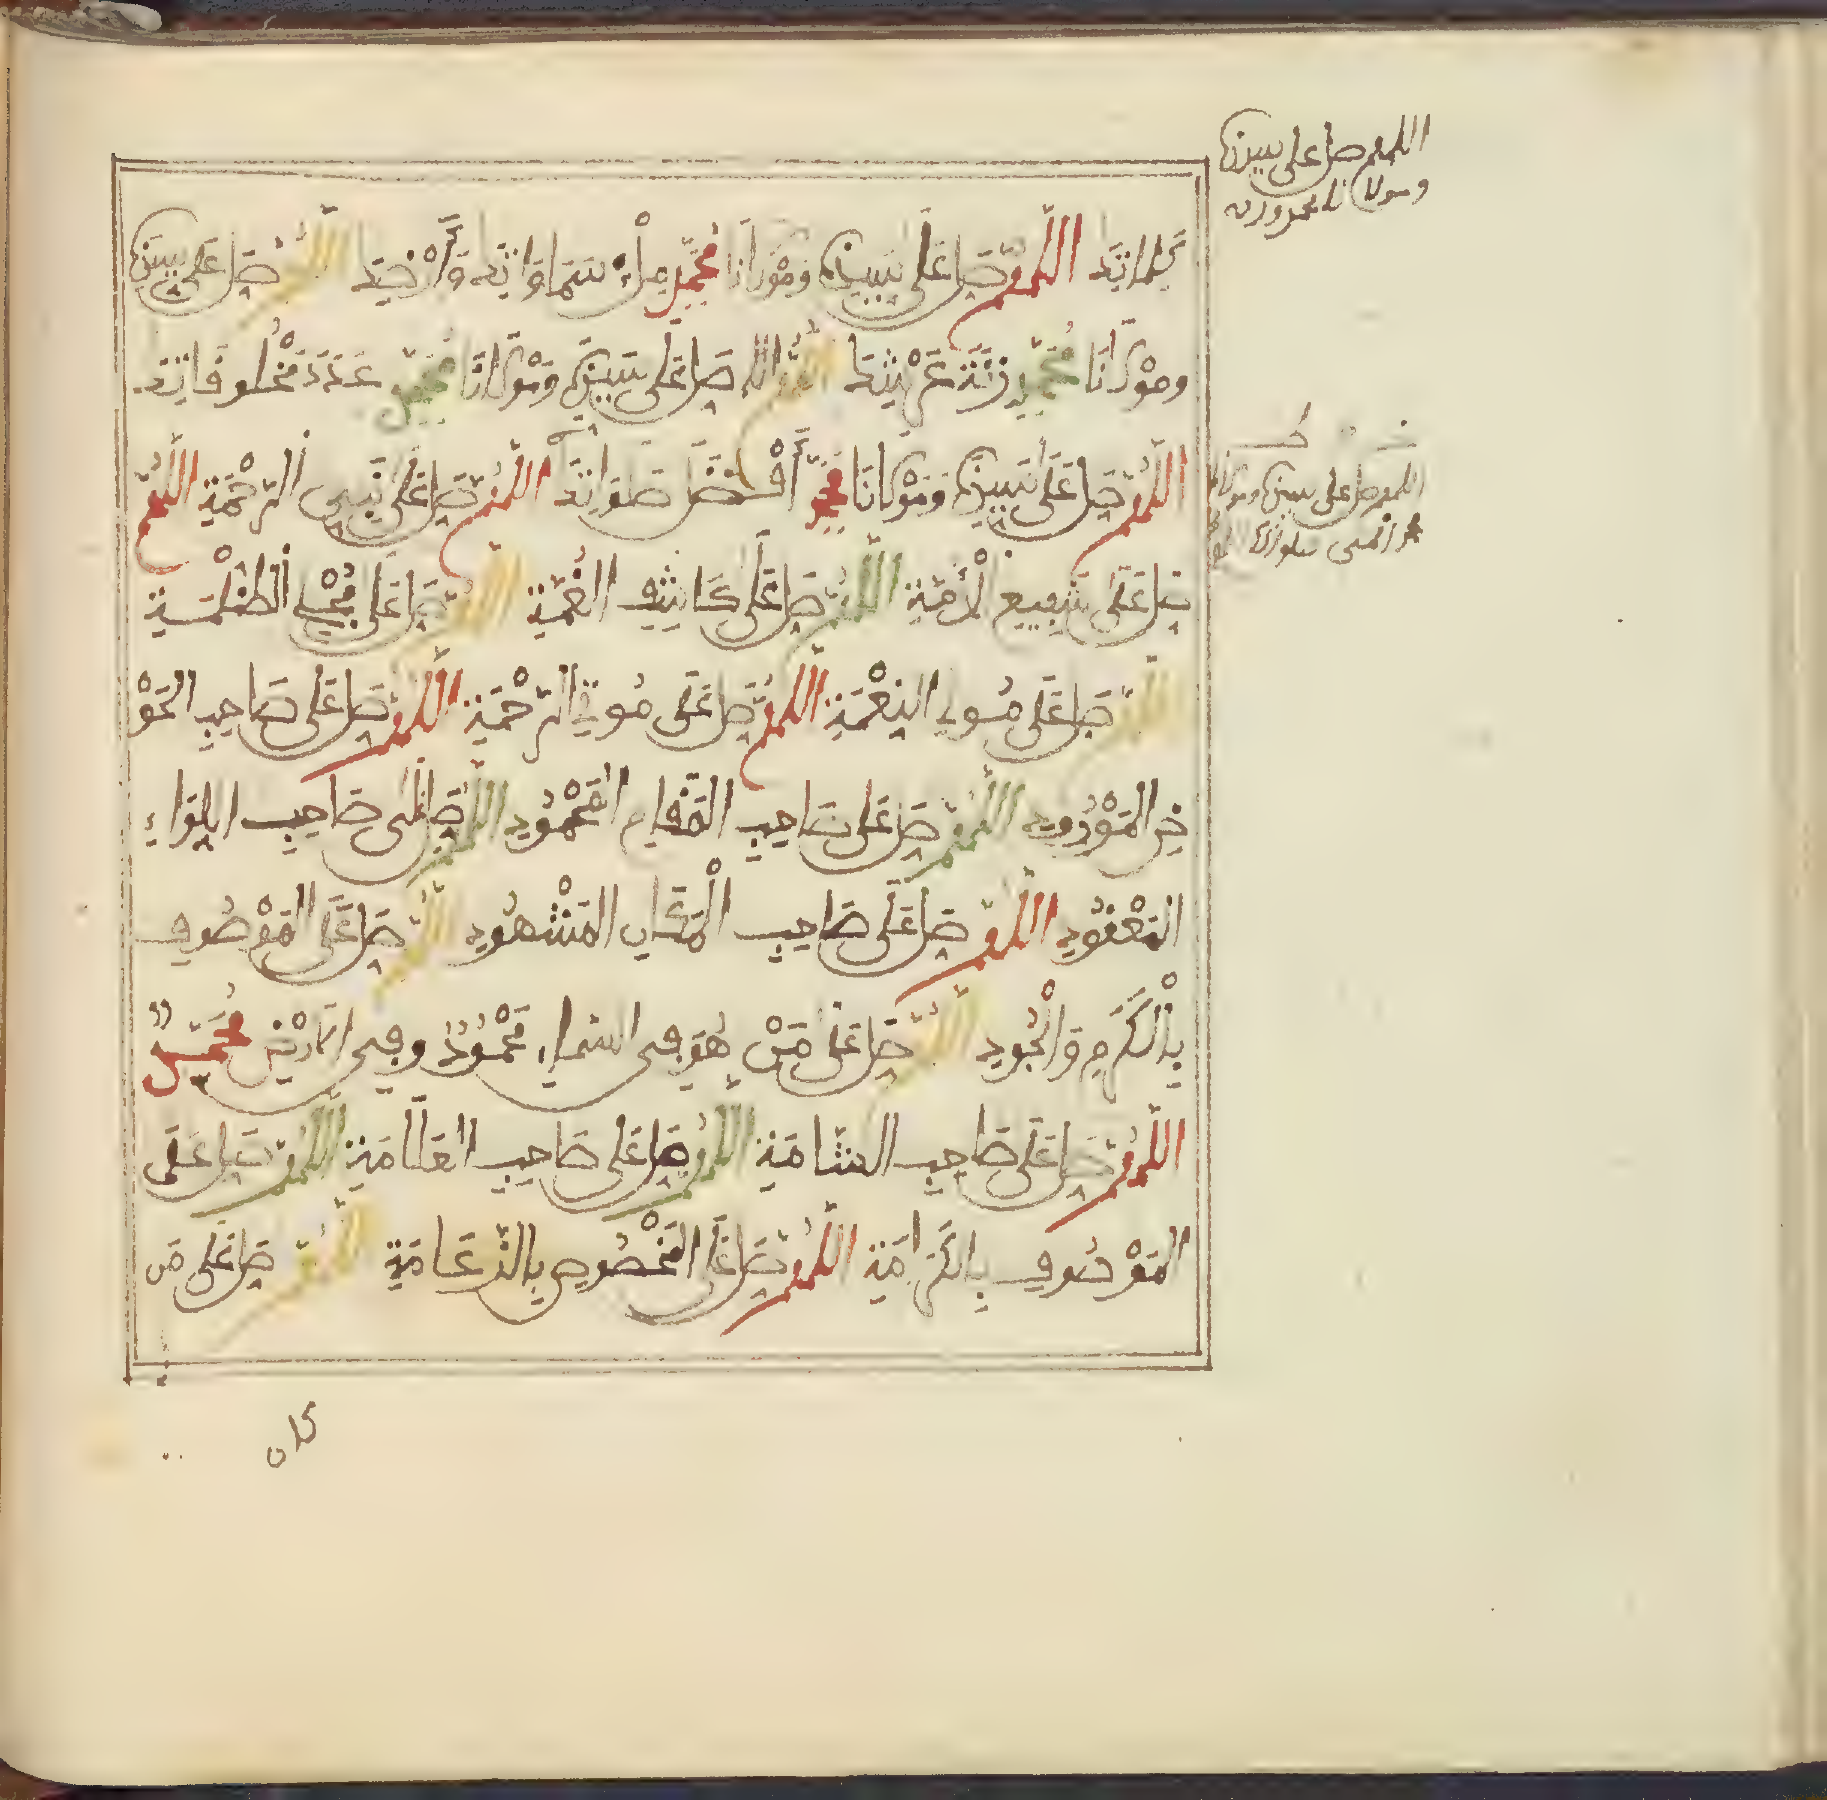 كلماته اللهم صل على سيدنا ومولانا محمد ملء سماواته وأرضه اللهم صل على سيدنا
ومولانا محمد زنة عرشه اللهم صل على سيدنا ومولانا محمد عدد مخلوقاته
اللهم صل على سيدنا ومولانا محمد أفضل صلواته اللهم صل على نبي الرحمة اللهم
صل على شفيع الأمة اللهم صل على كاشف الغمة اللهم صل على مجلي الظلمة
اللهم صل على مولي النعمة اللهم صل على موتي الرحمة اللهم صل على صاحب الحو
ض المورود اللهم صل على صاحب المقام المحمود اللهم صل على صاحب اللواء
المعقود اللهم صل على صاحب المكان المشهود اللهم صل على الموصوف
بالكرم والجود اللهم صل على من هو في السماء محمود وفي الأرض محمد
اللهم صل على صاحب الشامة اللهم صل على صاحب العلامة اللهم صل على
الموصوف بالكرامة اللهم صل على المخصوص بالزعامة اللهم صل على من
كان
اللهم صل على سيدنا
ومولانا محمد وزنة
اللهم صل على سيدنا ومولانا